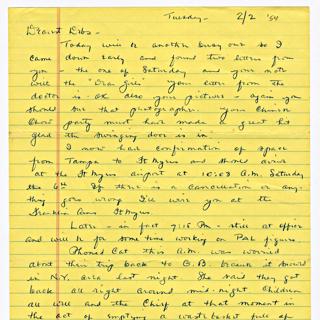 Tuesday - 2/2 '54
Dearest Bibs -
Today will be another busy one so I
came down early and found two letters from
you - the one of Saturday and your note
with the "Dear Girls" - your letter from the
doctor is OK also your picture - again you
should sue that photographer. Your Chinese
Chow party must have made a great hit
glad the swinging door is in.
I now have confirmation of space
from Tampa to Ft Myers and should arrive
at the Ft Myers airport at 10:08 A.M. Saturday
the 6th. If there is a cancellation or any-
thing goes wrong I'll wire you at the
Franklin Arms Ft Myers.
Later - in fact 9:15 PM - still at office
and will be for some time working on P&L figures.
Phoned Cat this A.M. was worried
about their trip back to G.B. because it snowed
in N.Y. area last night. She said they got
back all right around mid-night. Children
all well and the Chief at that moment in
the act of emptying a waste basket full of